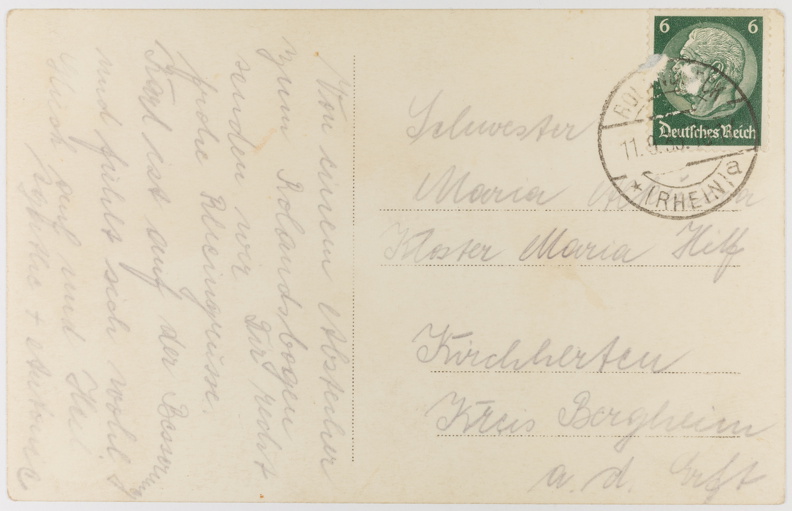 Von einem Abstecher
zum Rolandsbogen
senden wir Dir recht
frohe Rheingrüsse.
Karl ist auf der Besserung
und fühlt sich wohl.
und
+ Antonie
6 6
Deutsches Reich
11.
(RHEIN) a
Schwester
Maria
Kloster Maria Hilf
Kirchherten
Kreis Bergheim
a. d. Erft